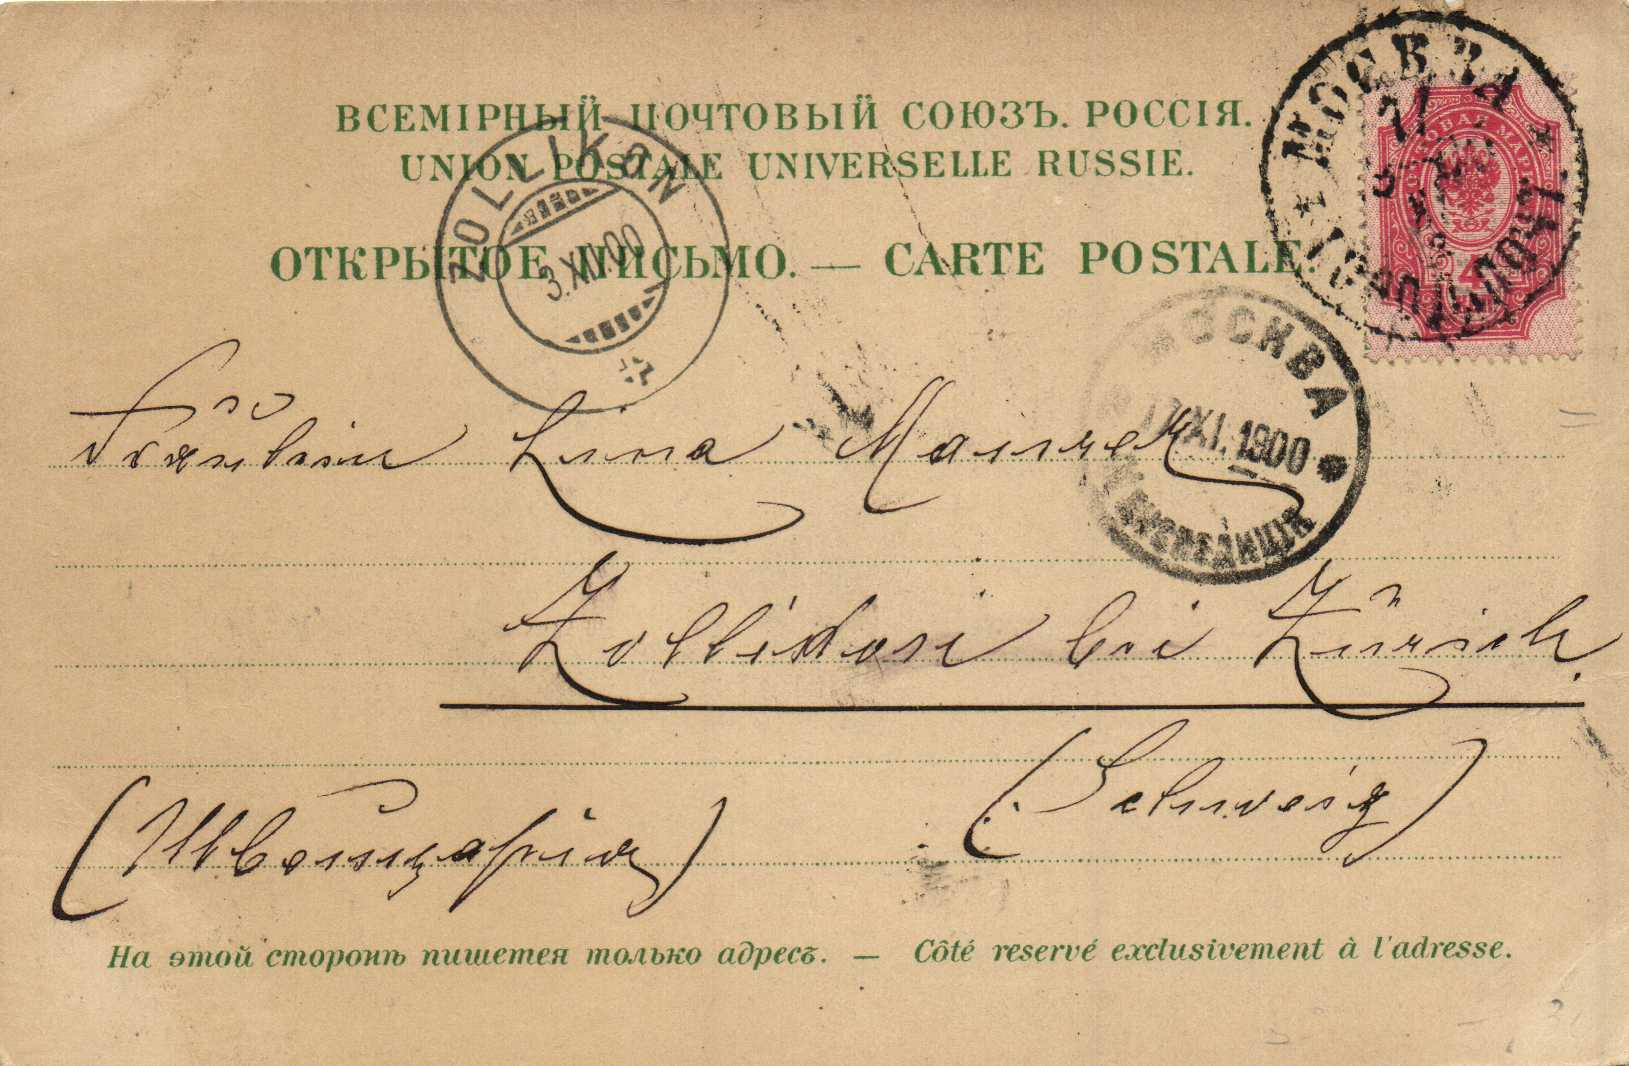 ВСЕМІРНЫЙ ПОЧТОВЫЙ СОЮЗЪ. РОССІЯ.
UNION POSTALE UNIVERSELLE RUSSIE.
ОТКРЫТОЕ ПИСЬМО. — CARTE POSTALE.
МОСКВА
ZOLLIKON
3.XII.00
МОСКВА
XI.1900
Fräulein Lina Maurer
Zollikon bei Zürich.
(Schweiz)
(Швейцарія)
На этой сторонѣ пишется только адресъ. — Côté reservé exclusivement à l'adresse.